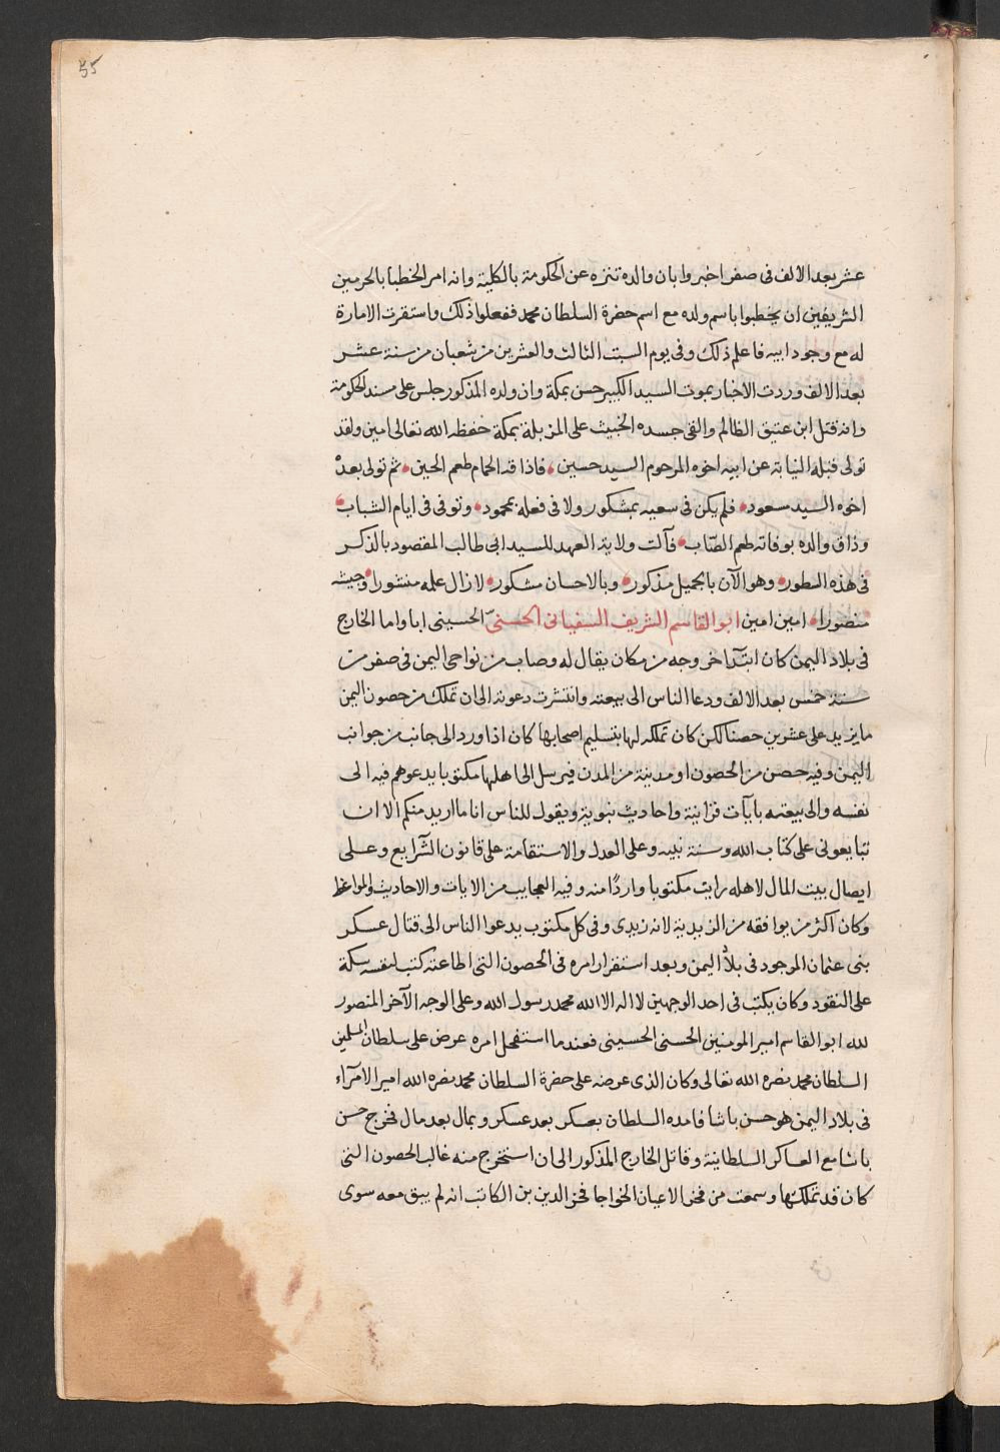 55
عشر بعد الالف فى صفر اخبروا بان والده تنزه عن الحكومة بالكلية وانه امر الخطبا بالحرمين
الشريفين ان يخطبوا باسم ولده مع اسم حضرة السلطان محمد ففعلوا ذلك واستقرت الامارة
له مع وجود ابيه فاعلم ذلك وفى يوم السبت الثالث والعشرين من شعبان من سنة عشر
بعد الالف وردت الاخبار بموت السيد الكبير حسن بمكة وان ولده المذكور جلس على مسند الحكومة
وانه قتل ابن عتيق الظالم والقى جسده الخبيث على المزبلة بمكة حفظه الله تعالى امين ولقد
تولى قبله النيابة عن ابيه اخوه المرحوم السيد حسين فاذاقه الحمام طعم الحين ثم تولى بعده
اخوه السيد سعود فلم يكن فى سعيه بمشكور ولا فى فعله بمحمود وتوفى فى ايام الشباب
وذاق والده بوفاته طعم الصّاب فآلت ولاية العهد للسيد ابى طالب المقصود بالذكر
فى هذه السطور وهو الآن بالجميل مذكور وبالاحسان مشكور لا زال علمه منشورا وجيشه
منصورا امين امين ابو القاسم الشريف السفيانى الحسنى الحسينى ابا واما الخارج
فى بلاد اليمن كان ابتدآ خروجه من مكان يقال له وصاب من نواحى اليمن فى صفر من
سنة خمس بعد الالف ودعا الناس الى بيعته وانتشرت دعوته الى ان تملك من حصون اليمن
ما يزيد على عشرين حصنا لكن كان تملكه لها بتسليم اصحابها كان اذا ورد الى جانب من جوانب
اليمن وفيه حصن من الحصون او مدينة من المدن فيرسل الى اهلها مكتوبا يدعوهم فيه الى
نفسه والى بيعته بايآت قرانية واحاديث نبوية ويقول للناس انا ما اريد منكم الا ان
تبايعونى على كتاب الله وسنة نبيه وعلى العدل والاستقامة على قانون الشرايع وعلى
ايصال بيت المال لاهله رايت مكتوبا واردًا منه وفيه العجايب من الايات والاحاديث والمواعظ
وكان اكثر من يوافقه من الزيدية لانه زيدى وفى كل مكتوب يدعوا الناس الى قتال عسكر
بنى عثمان الموجود فى بلاد اليمن وبعد استقرار امره فى الحصون التى اطاعته كتب لنفسه سكة
على النقود وكان يكتب فى احد الوجهين لا اله الا الله محمد رسول الله وعلى الوجه الآخر المنصور
لله ابو القاسم امير المومنين الحسنى الحسينى فعندما استفحل امره عرض على سلطان المسلمين
السلطان محمد نصره الله تعالى وكان الذى عرضه على حضرة السلطان محمد نصره الله امير الامرآء
فى بلاد اليمن هو حسن باشا فامده السلطان بعسكر بعد عسكر وبمال بعد مال فخرج حسن
باشا مع العساكر السلطانية وقاتل الخارج المذكور الى ان استخرج منه غالب الحصون التى
كان قد تملكها وسمعت من فخر الاعيان الخواجا فخر الدين بن الكاتب انه لم يبق معه سوى